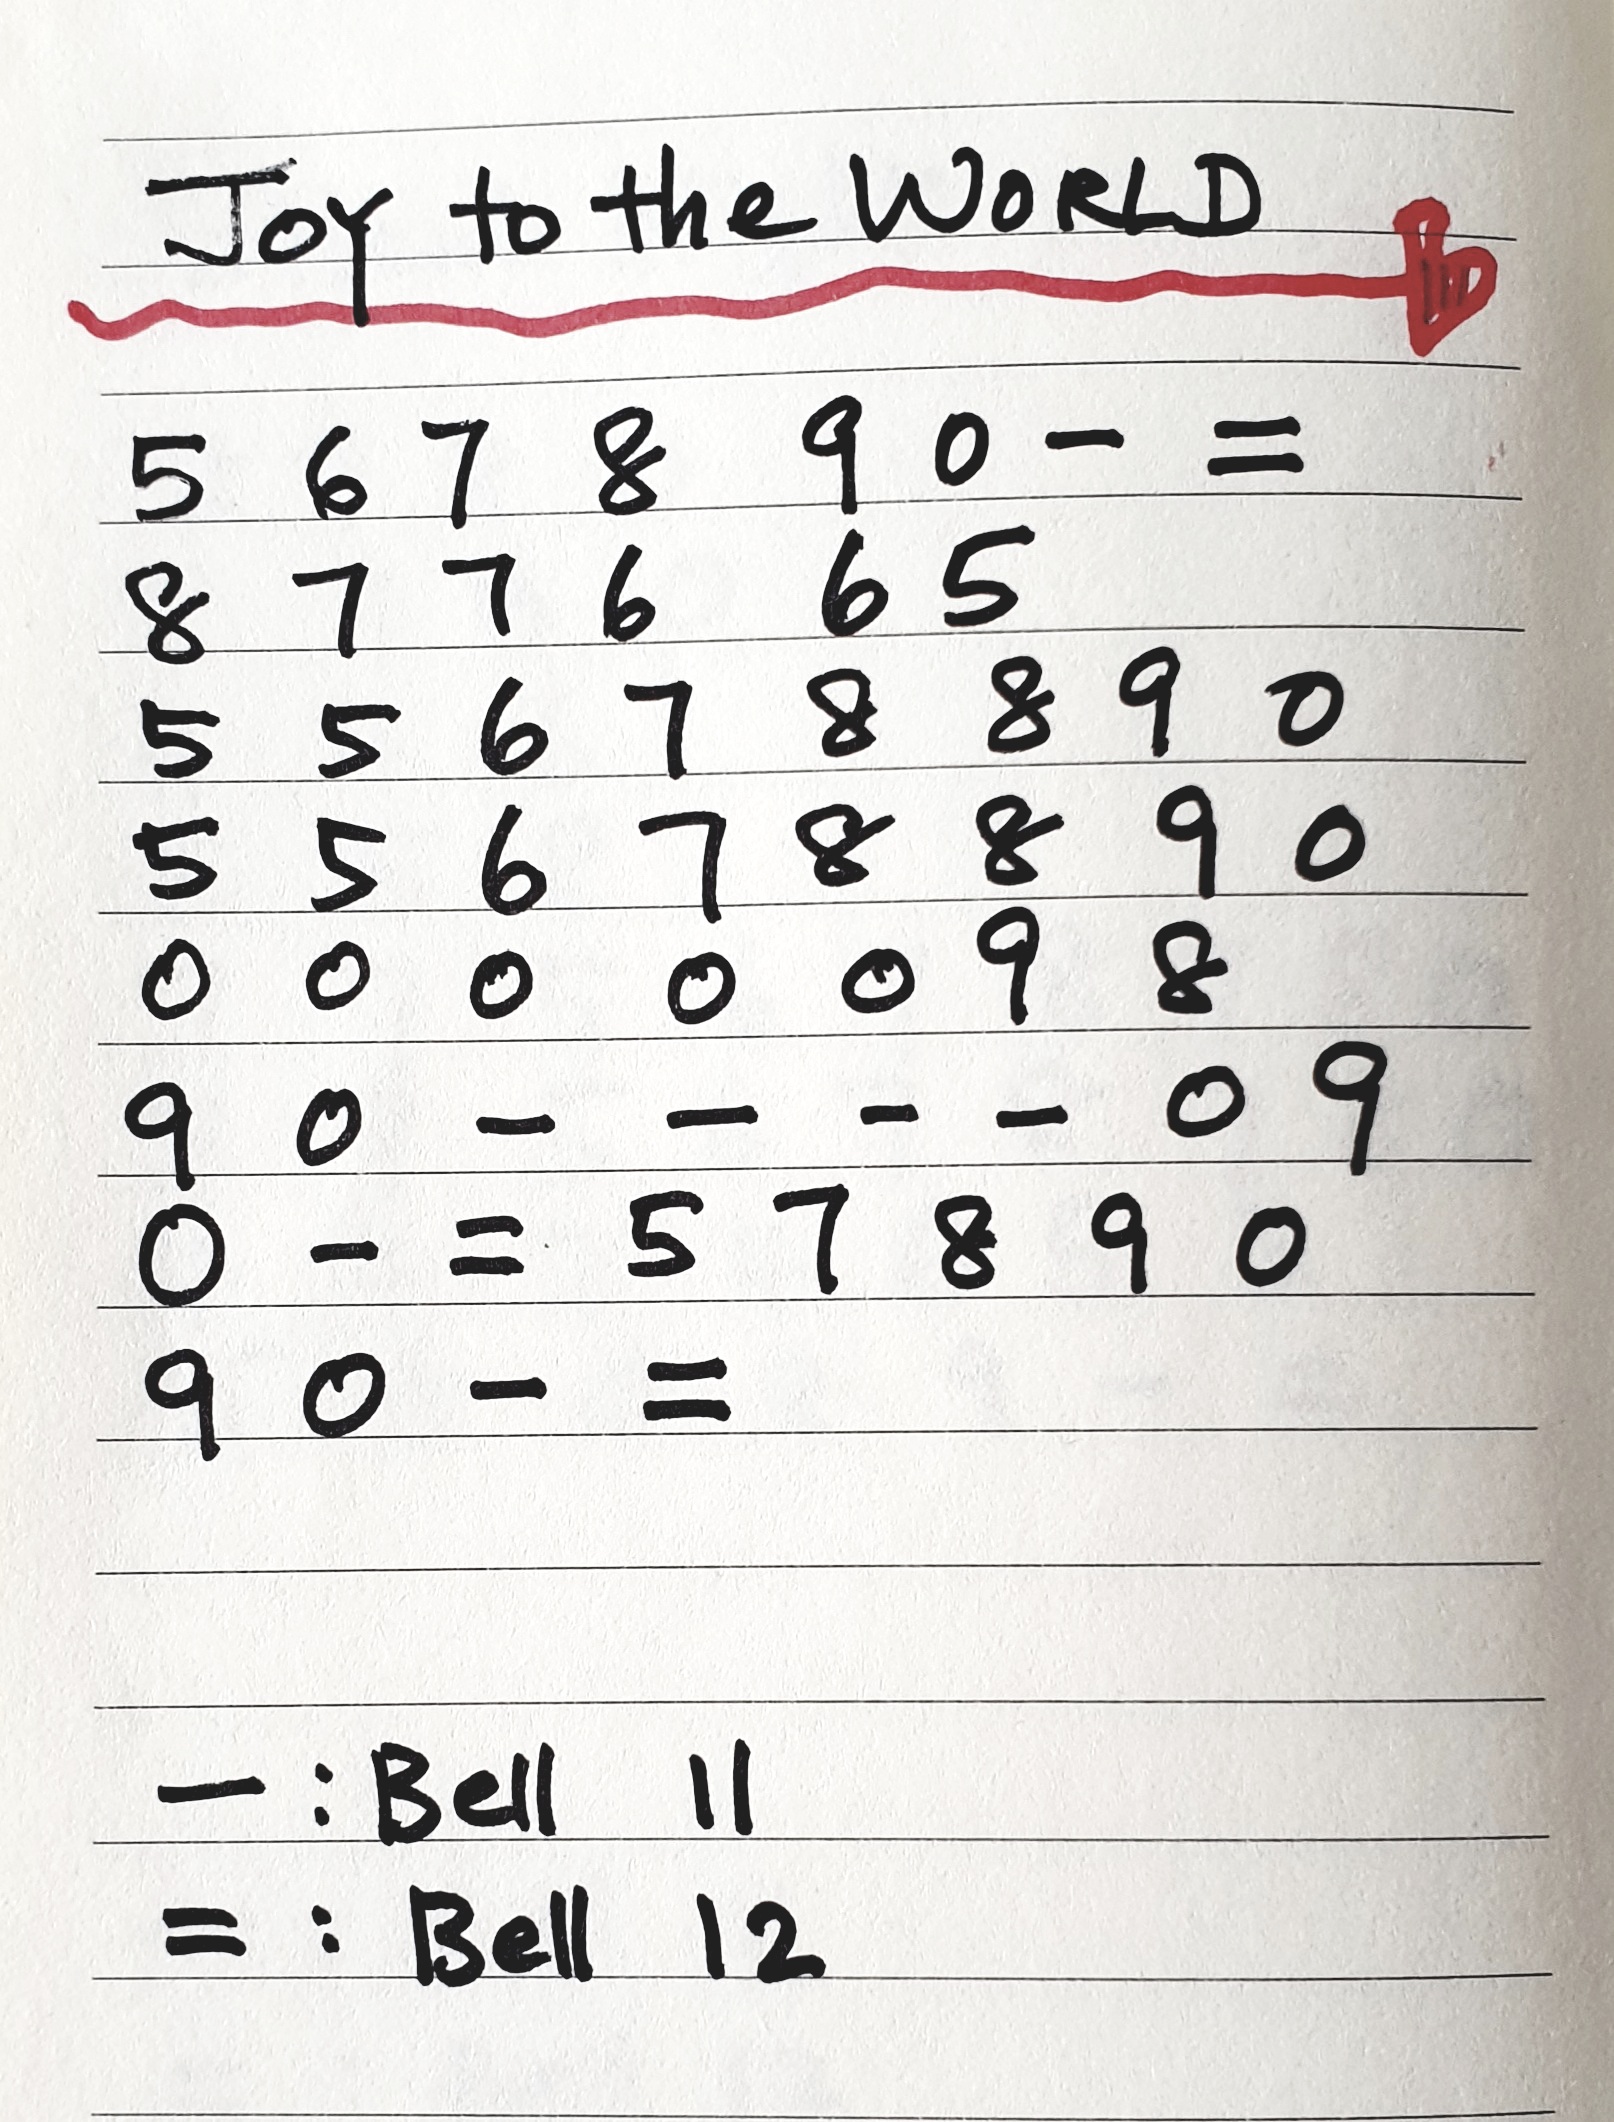 Joy to the WORLD
5 6 7 8 9 0 - =
8 7 7 6 6 5
5 5 6 7 8 8 9 0
5 5 6 7 8 8 9 0
0 0 0 0 0 9 8
9 0 - - - - 0 9
0 - = 5 7 8 9 0
9 0 - =
- : Bell 11
= : Bell 12